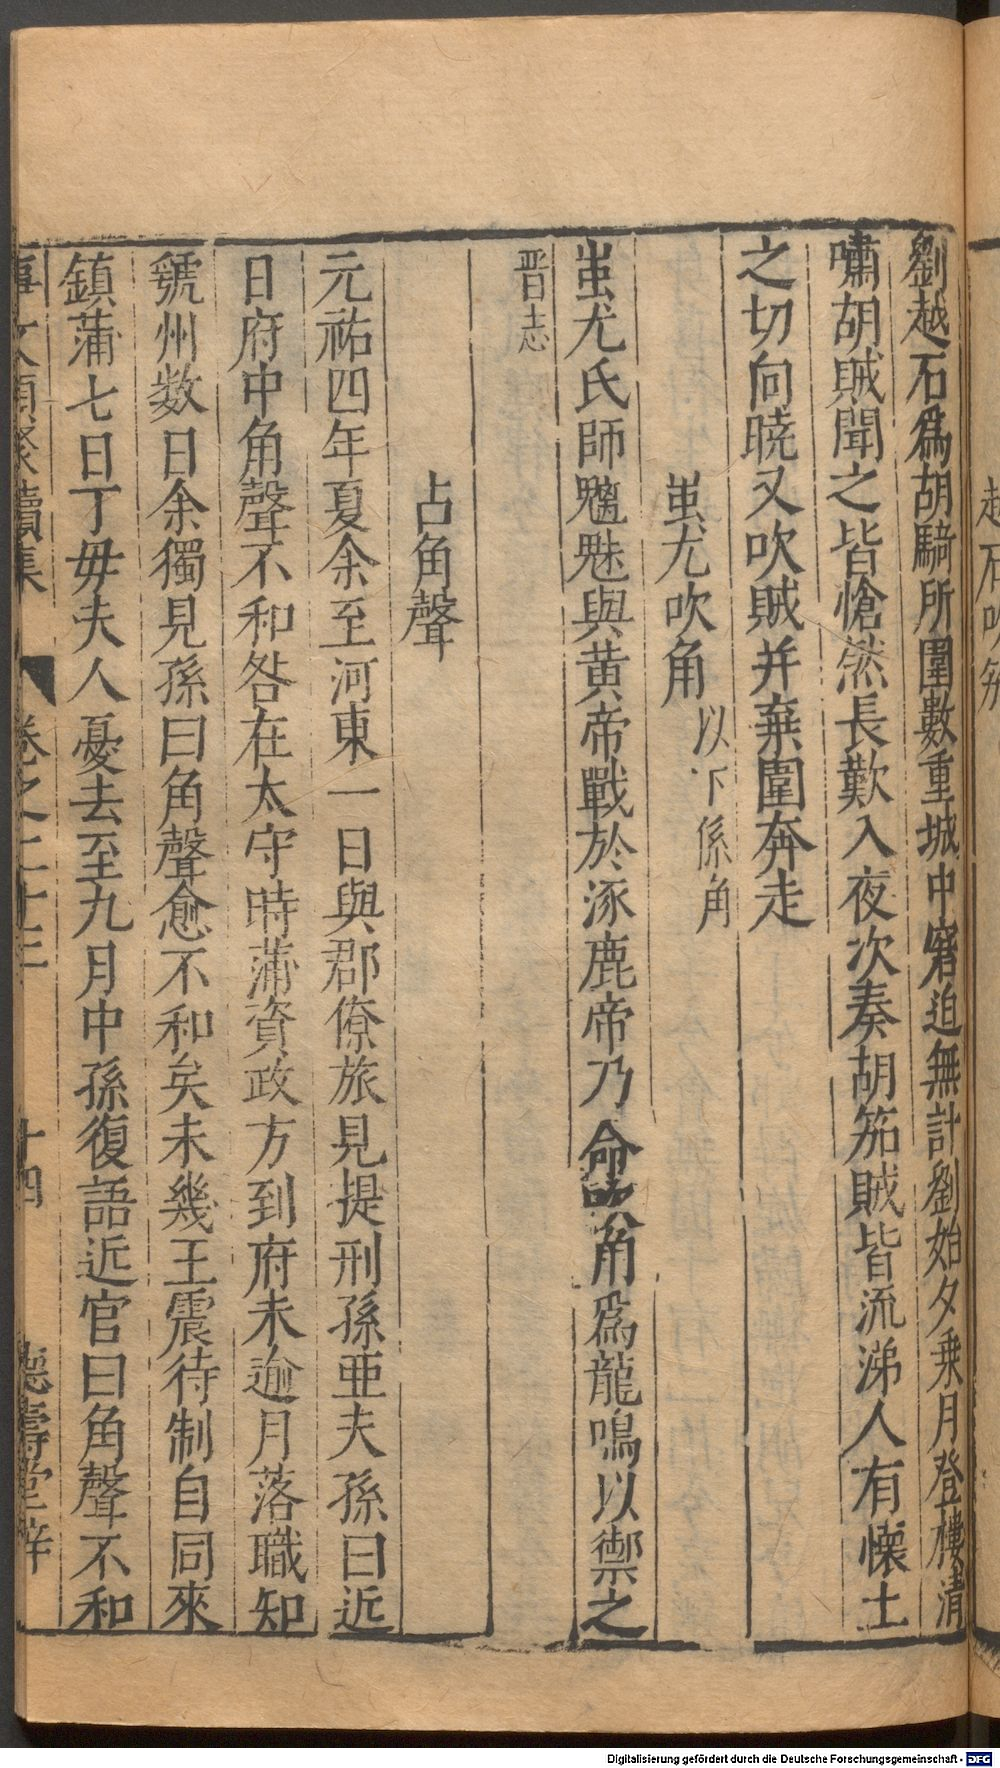 劉越石爲胡騎所圍數重城中窘迫無計劉始夕乗月登樓清
嘯胡賊聞之皆愴然長歎入夜次奏胡笳賊皆流涕人有懐土
之切向暁又吹賊并棄圍奔走
蚩尤吹角 以下係角
蚩尤氏師魑魅與黄帝戰於涿鹿帝乃命吹角爲龍鳴以禦之
晋志
占角聲
元祐四年夏余至河東一日與郡僚旅見提刑孫亜夫孫曰近
日府中角聲不和咎在太守時蒲資政方到府未逾月落職知
虢州数日余獨見孫曰角聲愈不和矣未幾王震待制自同來
鎮蒲七日丁毋夫人憂去至九月中孫復語近官曰角聲不和
事文類聚續集 卷之二十三 十四 德壽堂梓
Digitalisierung gefördert durch die Deutsche Forschungsgemeinschaft - DFG